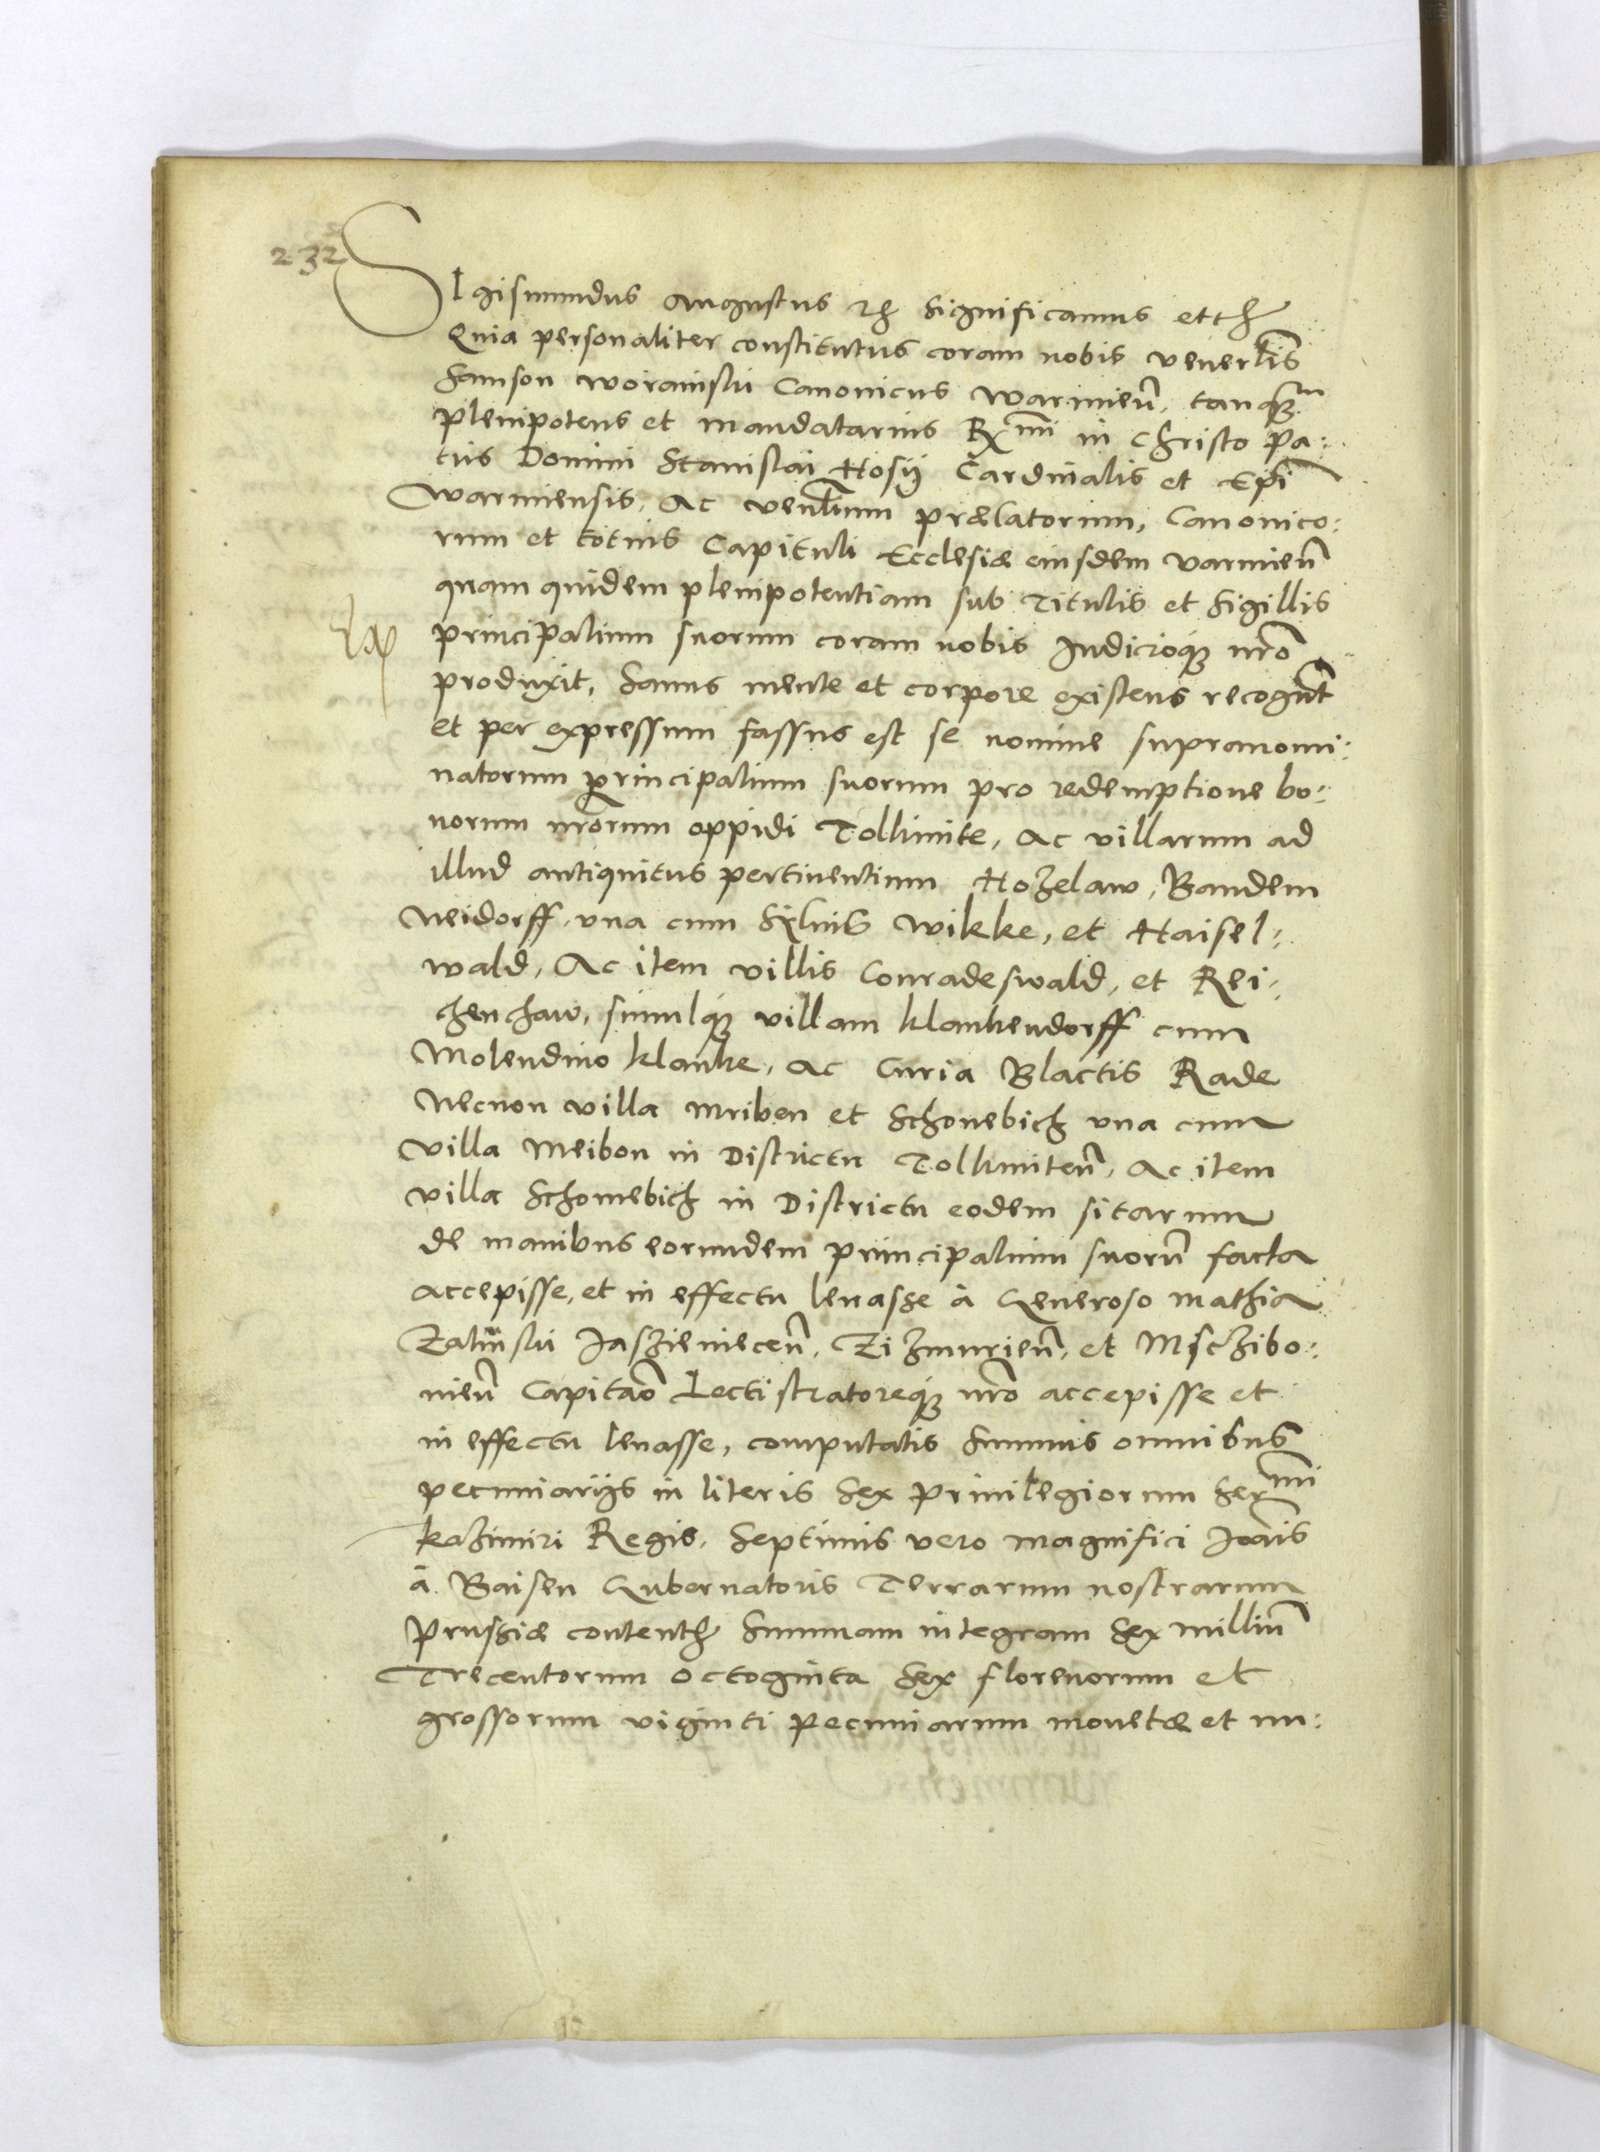 232
SIgismundus Augustus etc significamus ettc
Quia personaliter constitutus coram nobis venerlis
Samson Worainski Canonicus Warmien̄, tanq̃m
plenipotens et mandatarius Rx̃mi in Christo pa:
tris Domini Stanislai Hosij Cardinalis et Ep̃i
Warmiensis, Ac Venl̃ium prælatorum, Canonico:
rum et totius Capituli Ecclesiæ eiusdem Varmien̄
quam quidem plenipotentiam sub Titulis et Sigillis
principalium suorum coram nobis Iudicioq; nr̃o
produxit, Sanus mente et corpore existens recogñt
et per expressum fassus est se nomine supranomi:
natorum principalium suorum pro redemptione bo:
norum nr̃orum oppidi Tolkmite, Ac villarum ad
illud antiquitus pertinentium Hozelaw, Bandem
Neidorff, vna cum Sÿluis Wikke, et Haisel:
wald, Ac item villis Conradeswald, et Rei:
chenchaw, simulq; villam klankendorff cum
Molendino klanke, Ac Curia Blactis Rade
Necnon villa Mriben et Schonebich vna cum
Villa Meibon in Districtu Tolkmiten̄, Ac item
villa Schomebich in Districtu eodem sitarum
de manibus eorundem principalium suorū facta
accepisse, et in effectu leuasse à Generoso Mathia
Zalinski Iaszieniecen̄, Zizmurien̄, et Msczibo:
nien̄ Capitão Lectistratoreq; nr̃o accepisse et
in effectu leuasse, computatis summis omnibus
pecuniarijs in literis sex priuilegiorum Serx̃mi
kazimiri Regis, Septimis vero Magnifici Ioãis
à Baisen Gubernatoris Terrarum nostrarum
Prussiæ contentis Summam integram Sex milliū
Trecentorum octoginta Sex florenorum et
grossorum viginti pecuniarum monetæ et nu: